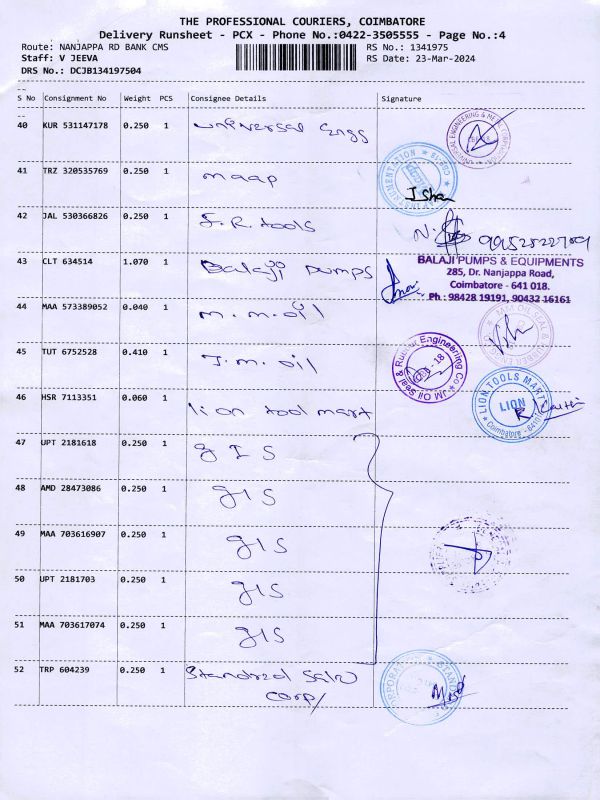 THE PROFESSIONAL COURIERS, COIMBATORE
Delivery Runsheet - PCX - Phone No.:0422-3505555 - Page No.:4
Route: NANJAPPA RD BANK CMS RS No.: 1341975
Staff: V JEEVA RS Date: 23-Mar-2024
DRS No.: DCJB134197504
--
S No Consignment No Weight PCS Consignee Details Signature
--
40 KUR 531147178 0.250 1 universal Engg
41 TRZ 320535769 0.250 1 maap
42 JAL 530366826 0.250 1 J.R. tools
43 CLT 634514 1.070 1 Balaji pumps
BALAJI PUMPS & EQUIPMENTS
285, Dr. Nanjappa Road,
Coimbatore - 641 018.
Ph : 98428 19191, 90432 16161
44 MAA 573389052 0.040 1 m.m.oil
45 TUT 6752528 0.410 1 J.m.oil
JM Oil Seal & Rubber Engineering Co
46 HSR 7113351 0.060 1 lion tool mart
LION TOOLS MART
LION
Coimbatore
47 UPT 2181618 0.250 1 g I S
48 AMD 28473086 0.250 1 gIS
49 MAA 703616907 0.250 1 gIS
50 UPT 2181703 0.250 1 gIS
51 MAA 703617074 0.250 1 gIS
52 TRP 604239 0.250 1 Standred Sales
corp/